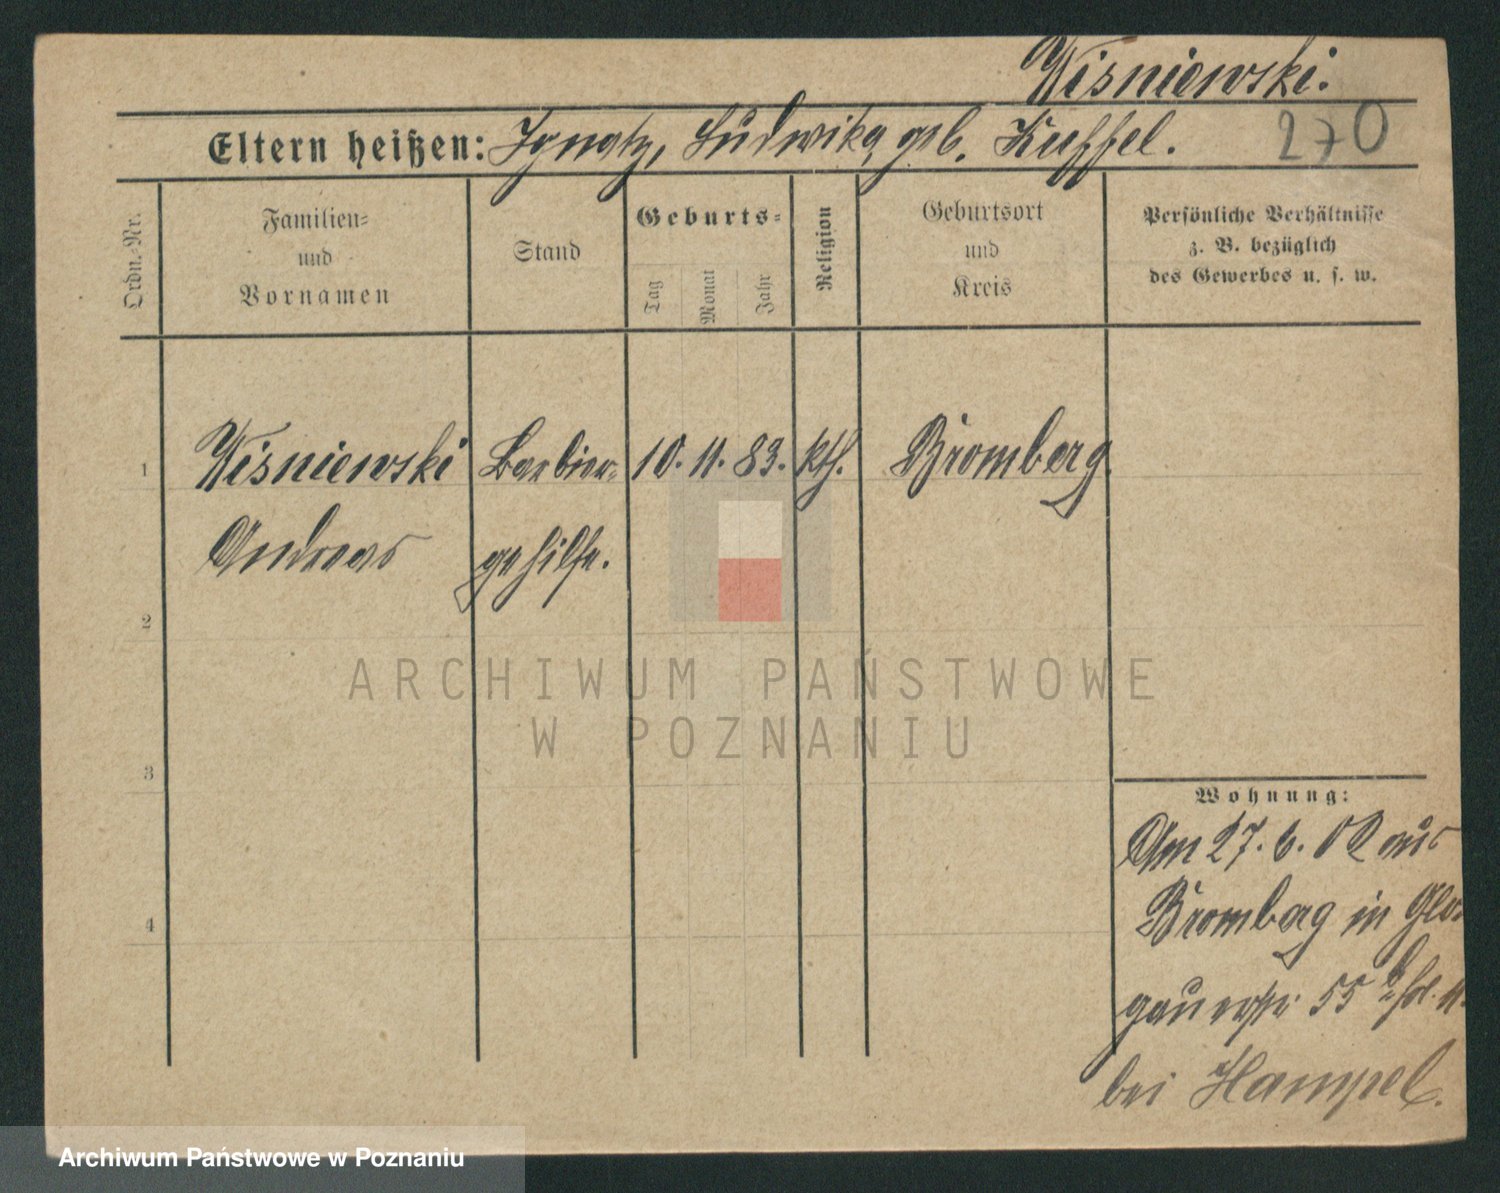 Wisniewski.
Eltern heißen: Ignatz, Ludwika, geb. Kuffel. 270
Ordn.-Nr.
Familien-
und
Vornamen
Stand
Geburts-
Tag
Monat
Jahr
Religion
Geburtsort
und
Kreis
Persönliche Verhältnisse
z. B. bezüglich
des Gewerbes u. s. w.
1 Wisniewski Barbier- 10. 11. 83. kth. Bromberg.
Andreas gehilfe.
2
ARCHIWUM PAŃSTWOWE
W POZNANIU
3
Wohnung:
Am 27. 6. 02 aus
Bromberg in Glo-
gauerstr. 55
4
bei Hampel.
Archiwum Państwowe w Poznaniu